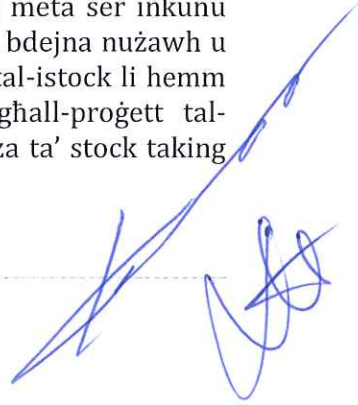 meta ser inkunu
bdejna nużawh u
tal-istock li hemm
għall-proġett tal-
za ta' stock taking